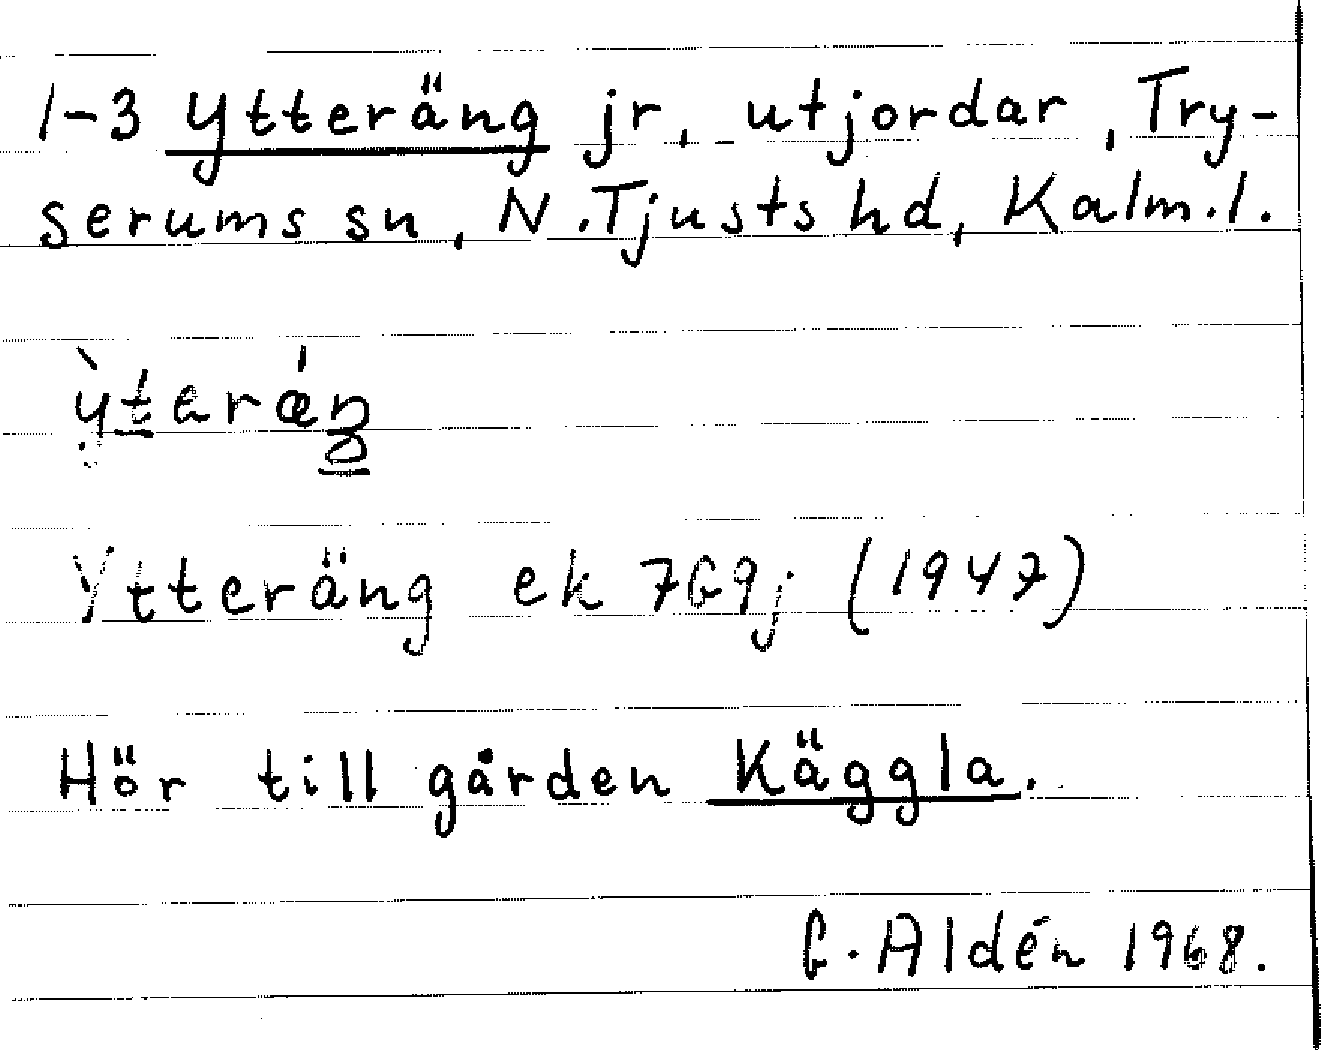 1-3 Ytteräng jr, utjordar, Try-
serums sn, N.Tjusts hd, Kalm.l.
Ytteräng ek 7G9j (1947)
Hör till gården Käggla.
G. Aldén 1968.